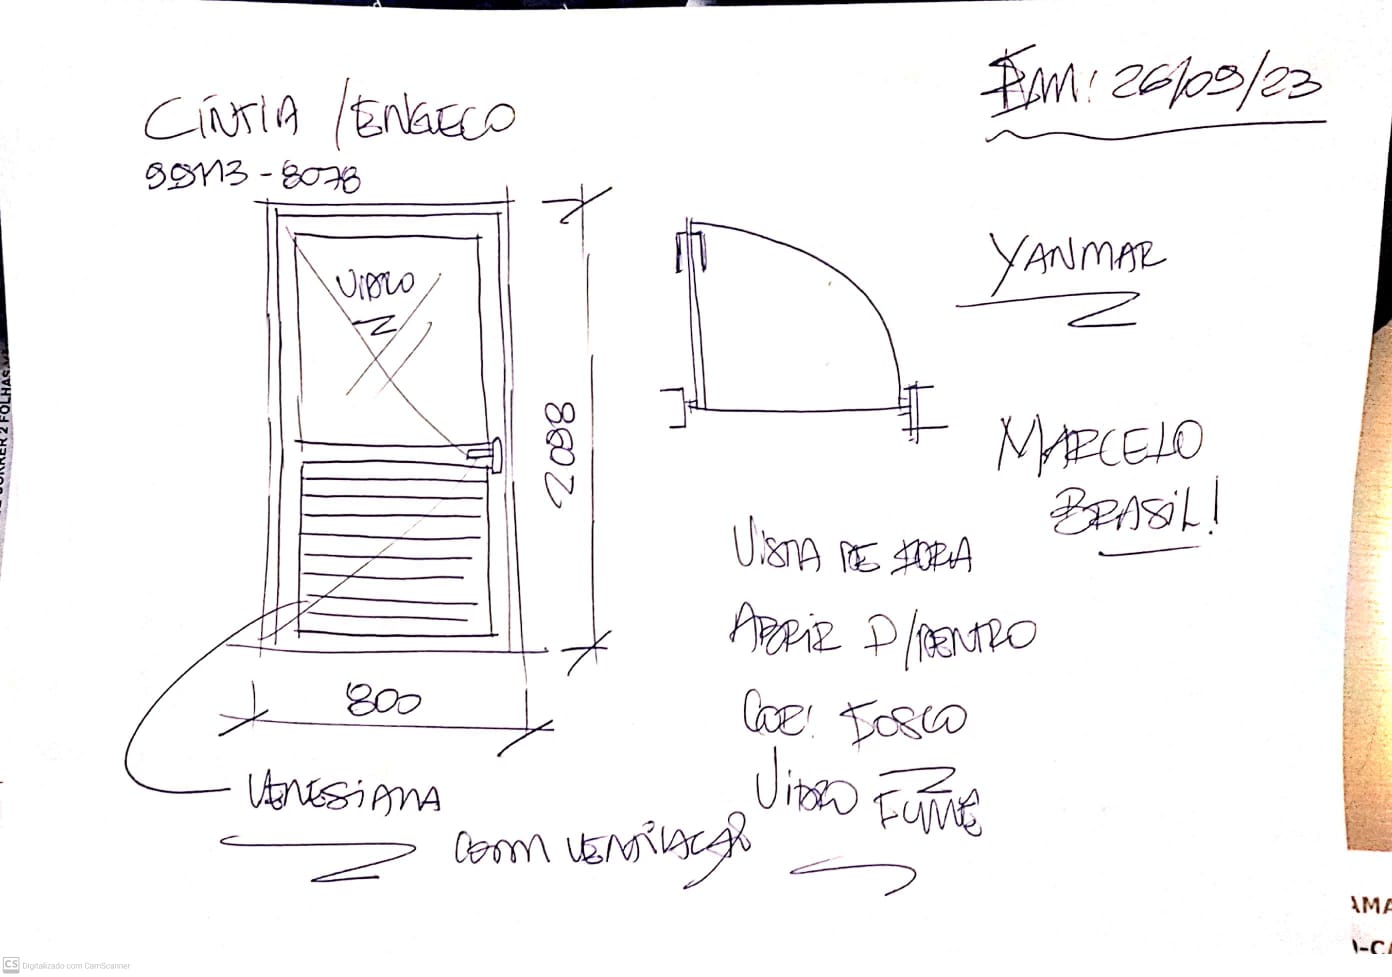 CÍNTIA /ENGECO
99113-8078
EM: 26/09/23
VIDRO
YANMAR
2098
MARCELO
BRASIL!
VISTA DE FORA
ABRIR P/DENTRO
800
COR: FOSCO
VENESIANA
VIDRO FUMÊ
COM VENTILAÇÃO
CORRER 2 FOLHAS
AMA
O-CA
CS Digitalizado com CamScanner